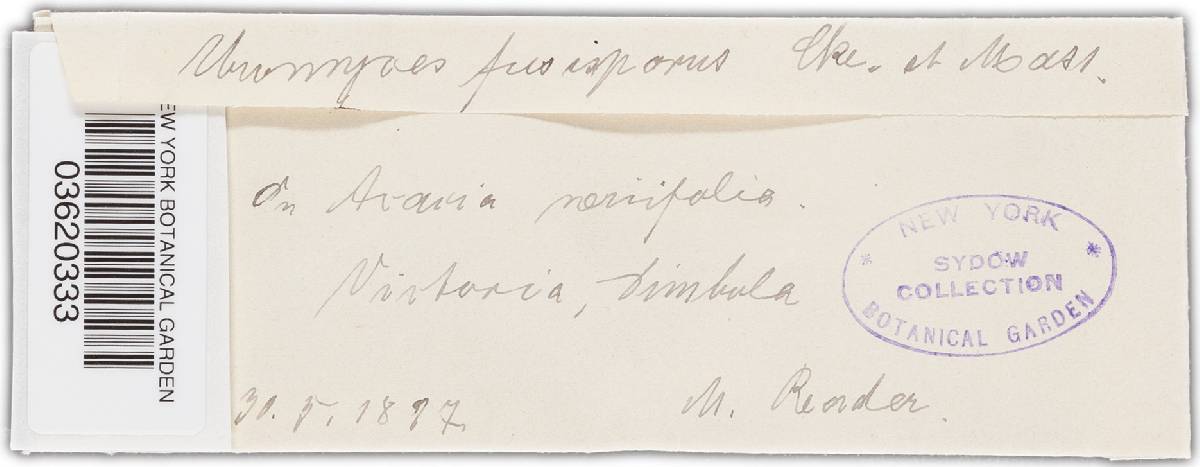 Uromyces fusisporus Cke. et Mass.
On Acacia neriifolia.
Victoria, Dimbola
30. 5. 1897.
M. Reader.
NEW YORK
SYDOW
COLLECTION
BOTANICAL GARDEN
NEW YORK BOTANICAL GARDEN
03620333